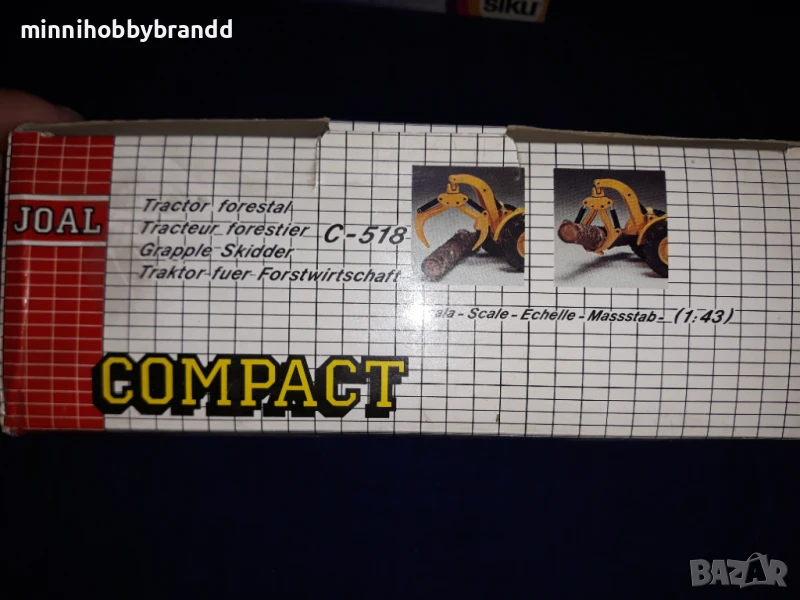 minnihobbybrandd
siku
JOAL
Tractor forestal
Tracteur forestier C-518
Grapple Skidder
Traktor fuer Forstwirtschaft
- Scale - Echelle - Massstab - (1:43)
COMPACT
BAZAR